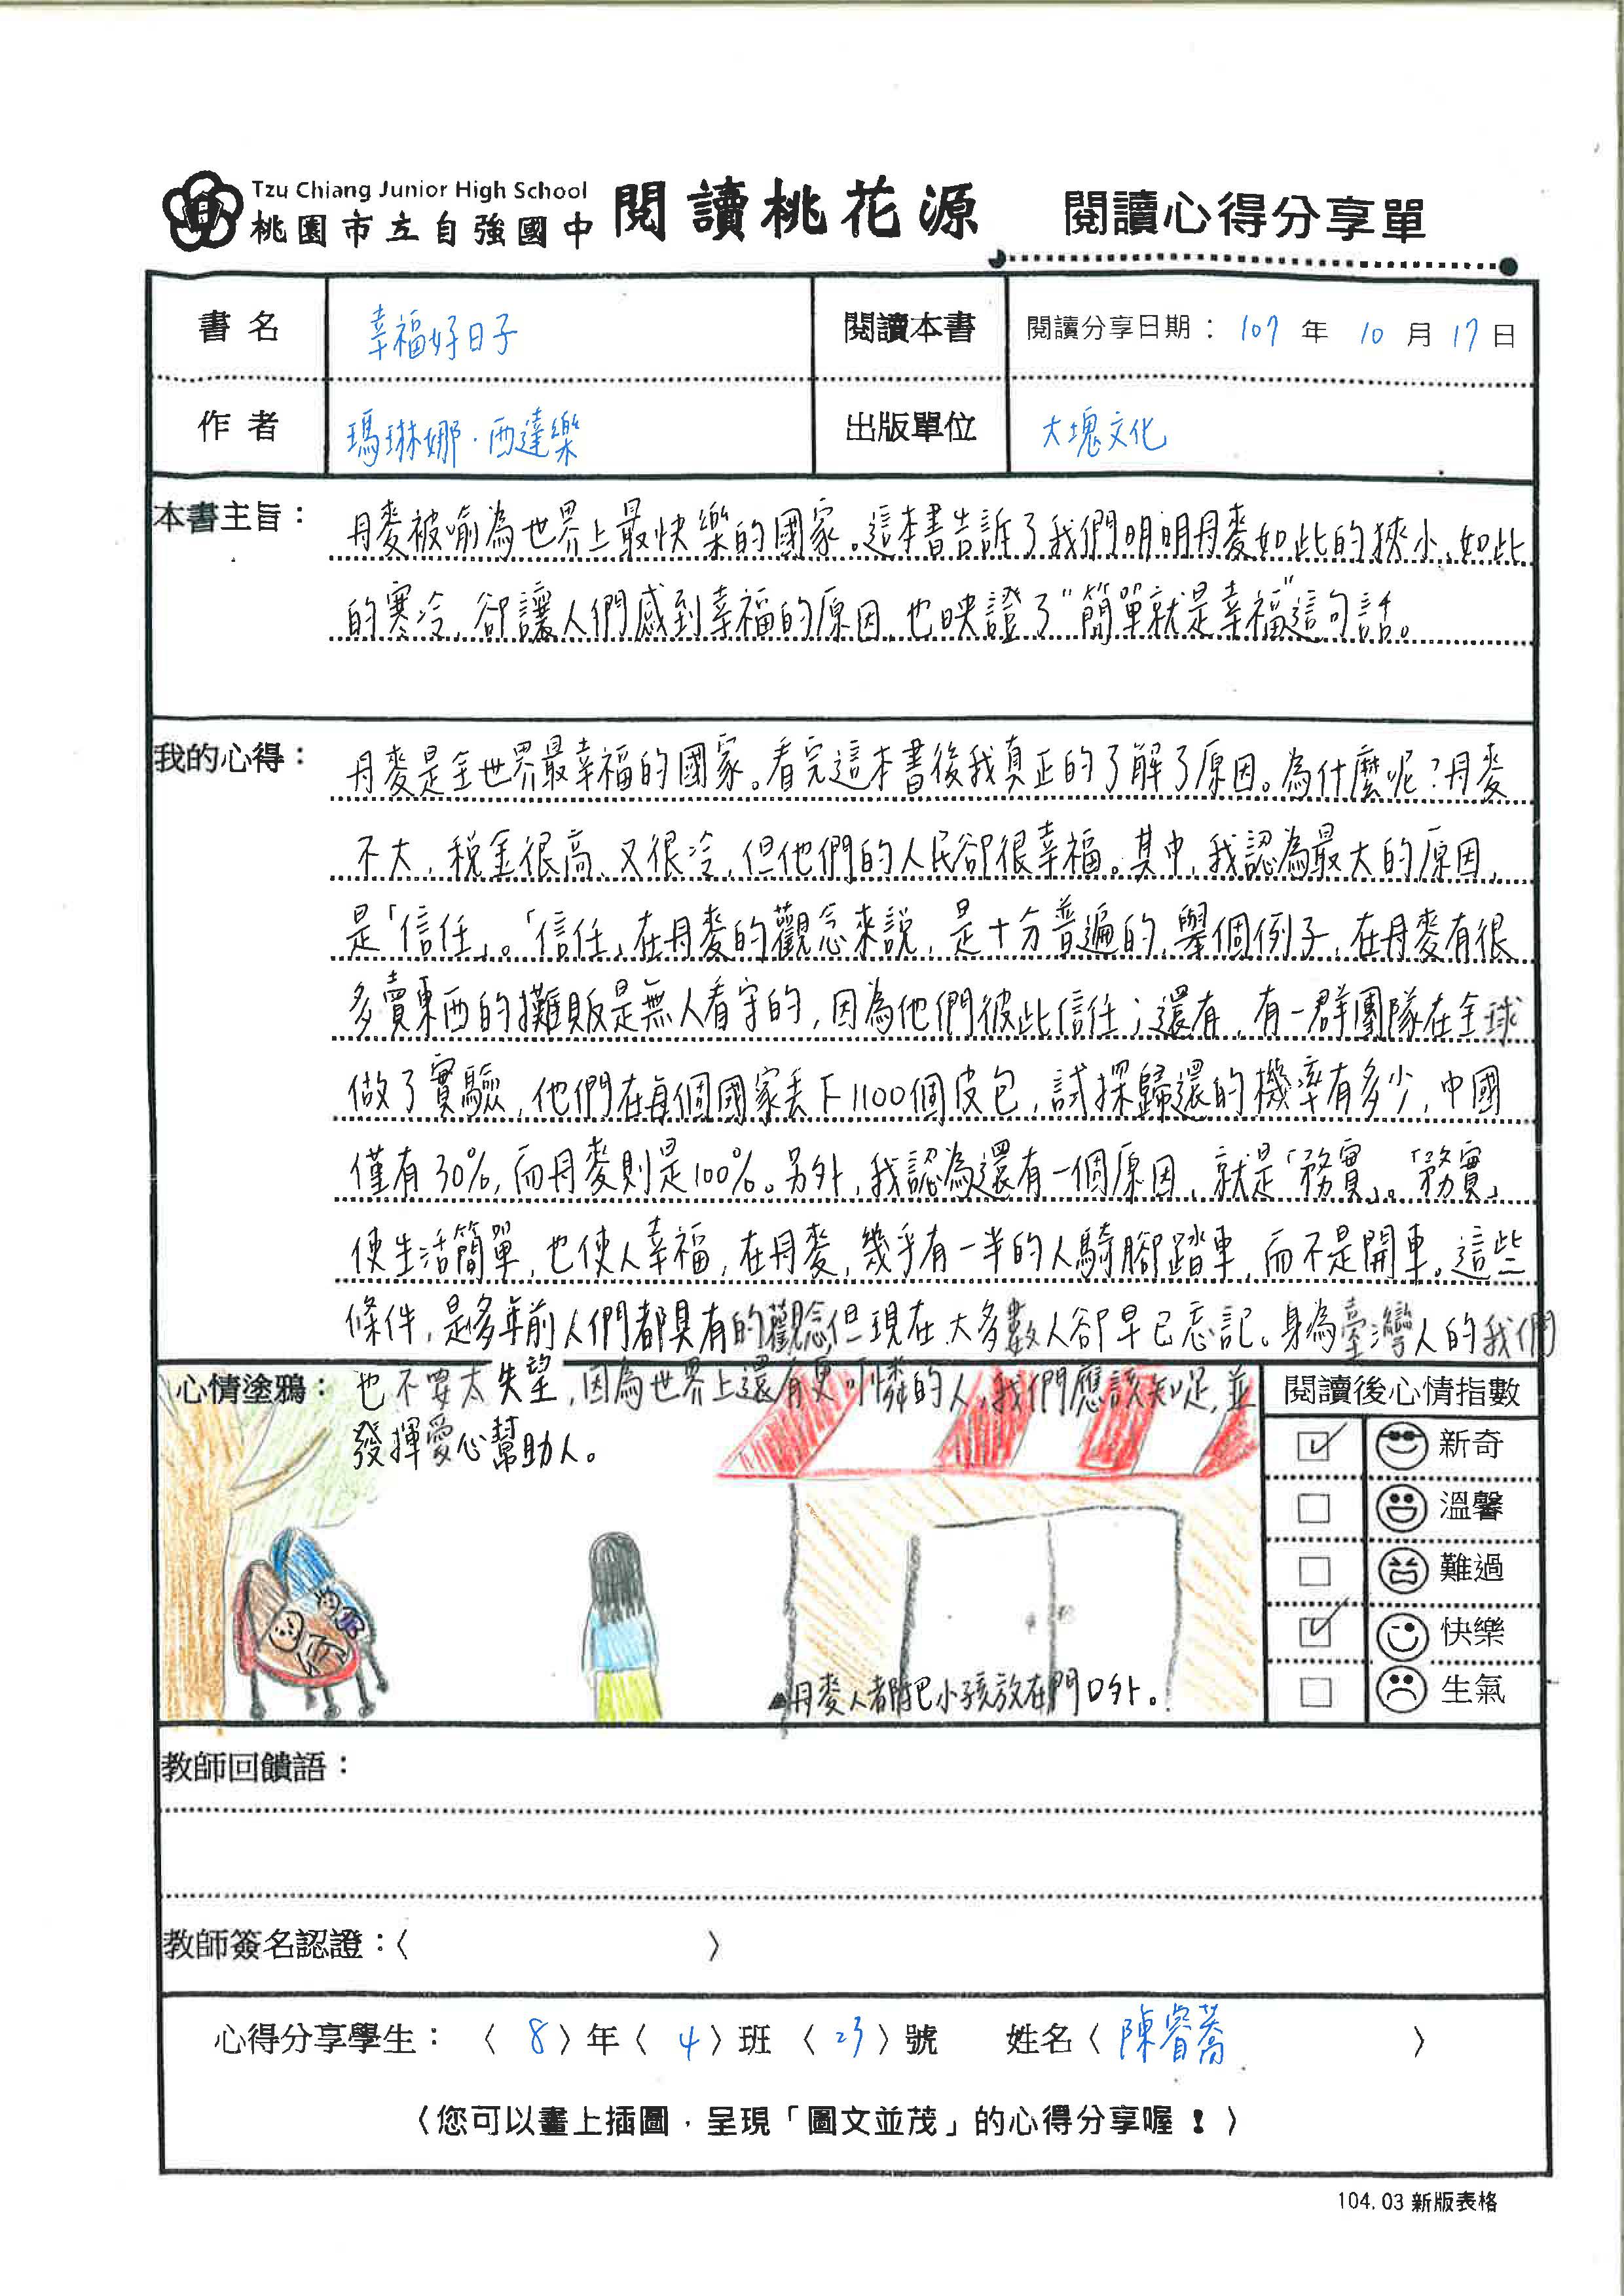 Tzu Chiang Junior High School
桃園市立自強國中 閱讀桃花源 閱讀心得分享單
書名 幸福好日子 閱讀本書 閱讀分享日期：107年10月17日
作者 瑪琳娜·西達樂 出版單位 大塊文化
本書主旨：丹麥被喻為世界上最快樂的國家。這本書告訴了我們明明丹麥如此的狹小、如此
的寒冷，卻讓人們感到幸福的原因，也映證了"簡單就是幸福"這句話。
我的心得：丹麥是全世界最幸福的國家。看完這本書後我真正的了解了原因。為什麼呢？丹麥
不大，稅金很高、又很冷，但他們的人民卻很幸福。其中，我認為最大的原因，
是「信任」。「信任」在丹麥的觀念來說，是十分普遍的，舉個例子，在丹麥有很
多賣東西的攤販是無人看守的，因為他們彼此信任；還有，有一群團隊在全球
做了實驗，他們在每個國家丟下1100個皮包，試探歸還的機率有多少，中國
僅有30%，而丹麥則是100%。另外，我認為還有一個原因，就是「務實」。「務實」
使生活簡單，也使人幸福，在丹麥，幾乎有一半的人騎腳踏車，而不是開車。這些
條件，是多年前人們都具有的觀念，但現在大多數人卻早已忘記。身為臺灣人的我們
心情塗鴉：也不要太失望，因為世界上還有更可憐的人，我們應該知足，並
發揮愛心幫助人。
▲丹麥人都把小孩放在門口外。
閱讀後心情指數
☑ 新奇
□ 溫馨
□ 難過
☑ 快樂
□ 生氣
教師回饋語：
教師簽名認證：〈 〉
心得分享學生：〈8〉年〈4〉班〈23〉號 姓名〈陳睿蕎 〉
〈您可以畫上插圖，呈現「圖文並茂」的心得分享喔！〉
104.03新版表格